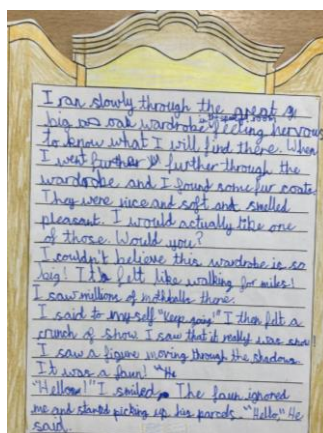 I ran slowly through the great
big oak wardrobe feeling nervous
to know what I will find there. When
I went further further through the
wardrobe and I found some fur coats.
They were nice and soft and smelled
pleasant. I would actually like one
of those. Would you?
I couldn't believe this wardrobe is so
big! It felt like walking for miles!
I saw millions of mothballs there.
I said to myself "Keep going!" I then felt a
crunch of snow I saw that it really was snow!
I saw a figure moving through the shadows.
It was a faun! "He
"Hello!" I smiled. The faun ignored
me and started picking up his parcels. "Hello," He
said.